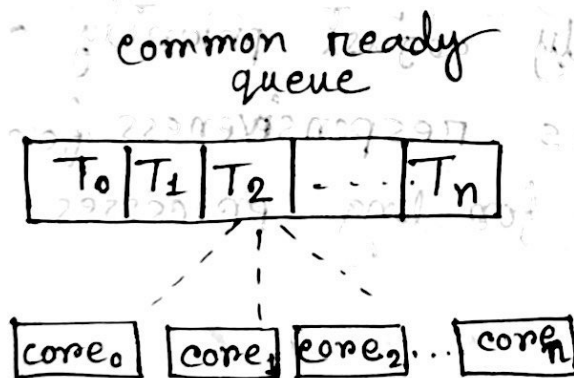 common ready
queue
T₀ T₁ T₂ ..... Tₙ
core₀ core₁ core₂ ... coreₙ